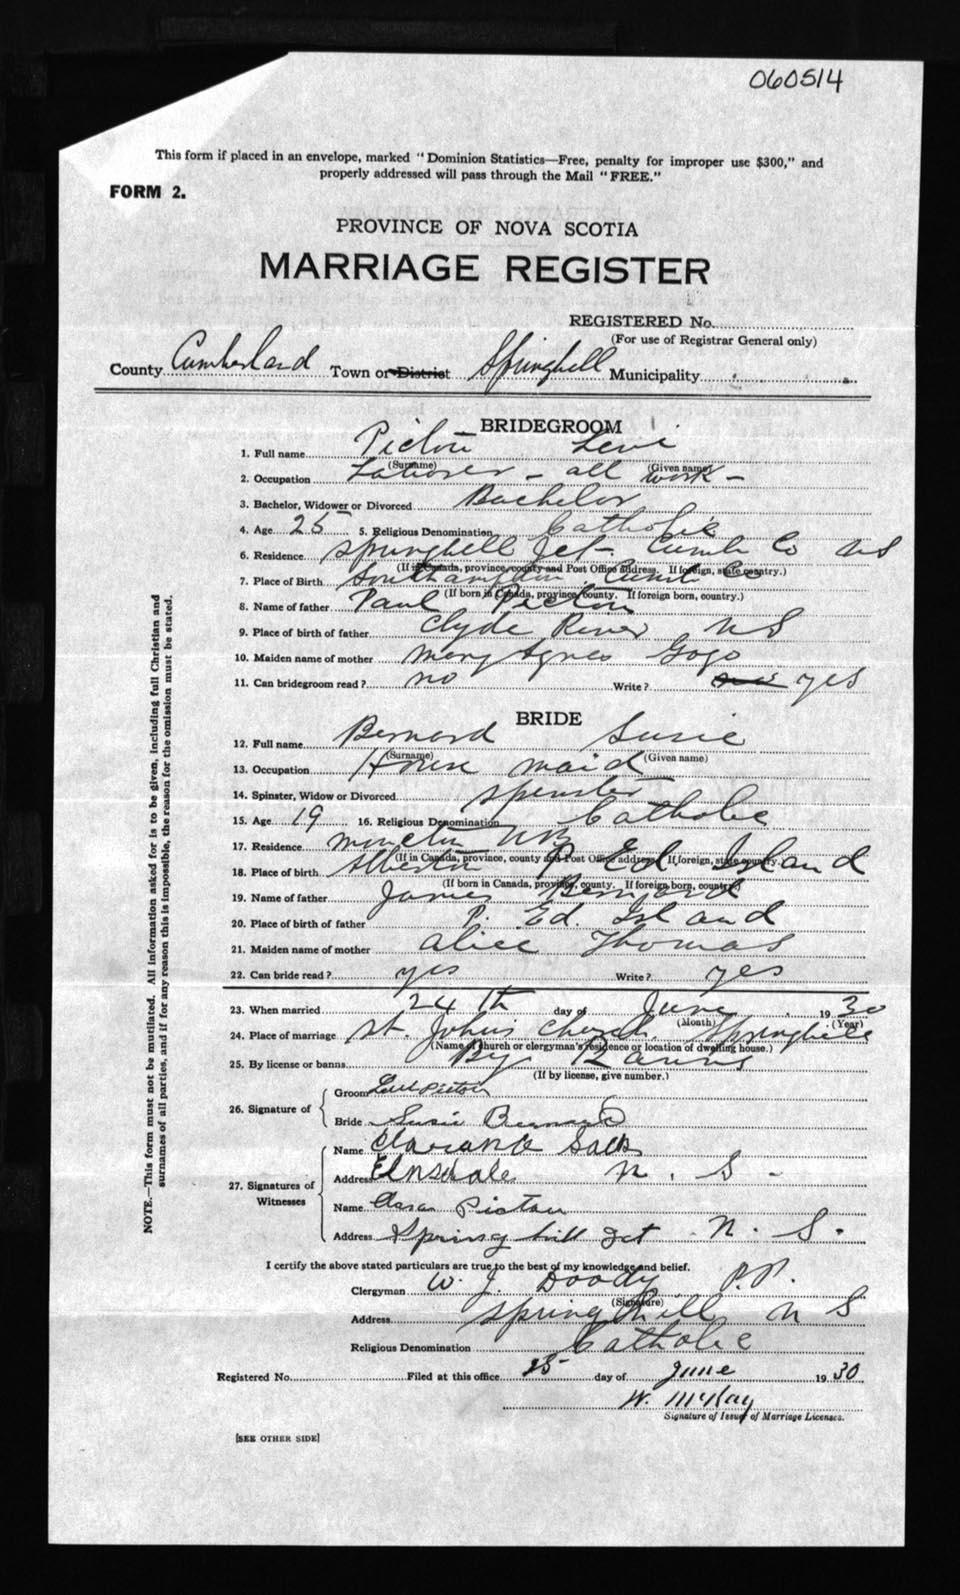 060514
This form if placed in an envelope, marked "Dominion Statistics—Free, penalty for improper use $300," and
properly addressed will pass through the Mail "FREE."
FORM 2.
PROVINCE OF NOVA SCOTIA
MARRIAGE REGISTER
REGISTERED No.
(For use of Registrar General only)
County Cumberland Town or District Springhill Municipality
BRIDEGROOM
1. Full name Picton Levi
(Surname) (Given name)
2. Occupation Laborer - all work -
3. Bachelor, Widower or Divorced Bachelor
4. Age 25 5. Religious Denomination Catholic
6. Residence Springhill Jct - Cumb Co NS
(If in Canada, province, county and Post Office address. If foreign, state country.)
7. Place of Birth Southampton Cumb Co
(If born in Canada, province, county. If foreign born, country.)
8. Name of father Paul Picton
9. Place of birth of father Clyde River NS
10. Maiden name of mother Mary Agnes Gogo
11. Can bridegroom read? no Write? yes
BRIDE
12. Full name Bernard Susie
(Surname) (Given name)
13. Occupation House maid
14. Spinster, Widow or Divorced spinster
15. Age 19 16. Religious Denomination Catholic
17. Residence Moncton NB
(If in Canada, province, county and Post Office address. If foreign, state country.)
18. Place of birth Alberton P Ed Island
(If born in Canada, province, county. If foreign born, country)
19. Name of father James Bernard
20. Place of birth of father P. Ed. Island
21. Maiden name of mother Alice Thomas
22. Can bride read? yes Write? yes
23. When married 24th day of June 1930
(Month) (Year)
24. Place of marriage St. John's Church Springhill
(Name of church or clergyman's residence or location of dwelling house.)
25. By license or banns By Banns
(If by license, give number.)
26. Signature of
Groom Levi Picton
Bride Susie Bernard
27. Signatures of Witnesses
Name
Address N. S -
Name Picton
Address Springhill Jct. N. S.
I certify the above stated particulars are true to the best of my knowledge and belief.
Clergyman W. J. Doody P.P.
(Signature)
Address Springhill N S
Religious Denomination Catholic
Registered No. Filed at this office 25 day of June 1930
W. McKay
Signature of Issuer of Marriage Licenses.
[SEE OTHER SIDE]
NOTE.—This form must not be mutilated. All information asked for is to be given, including full Christian and
surnames of all parties, and if for any reason this is impossible, the reason for the omission must be stated.